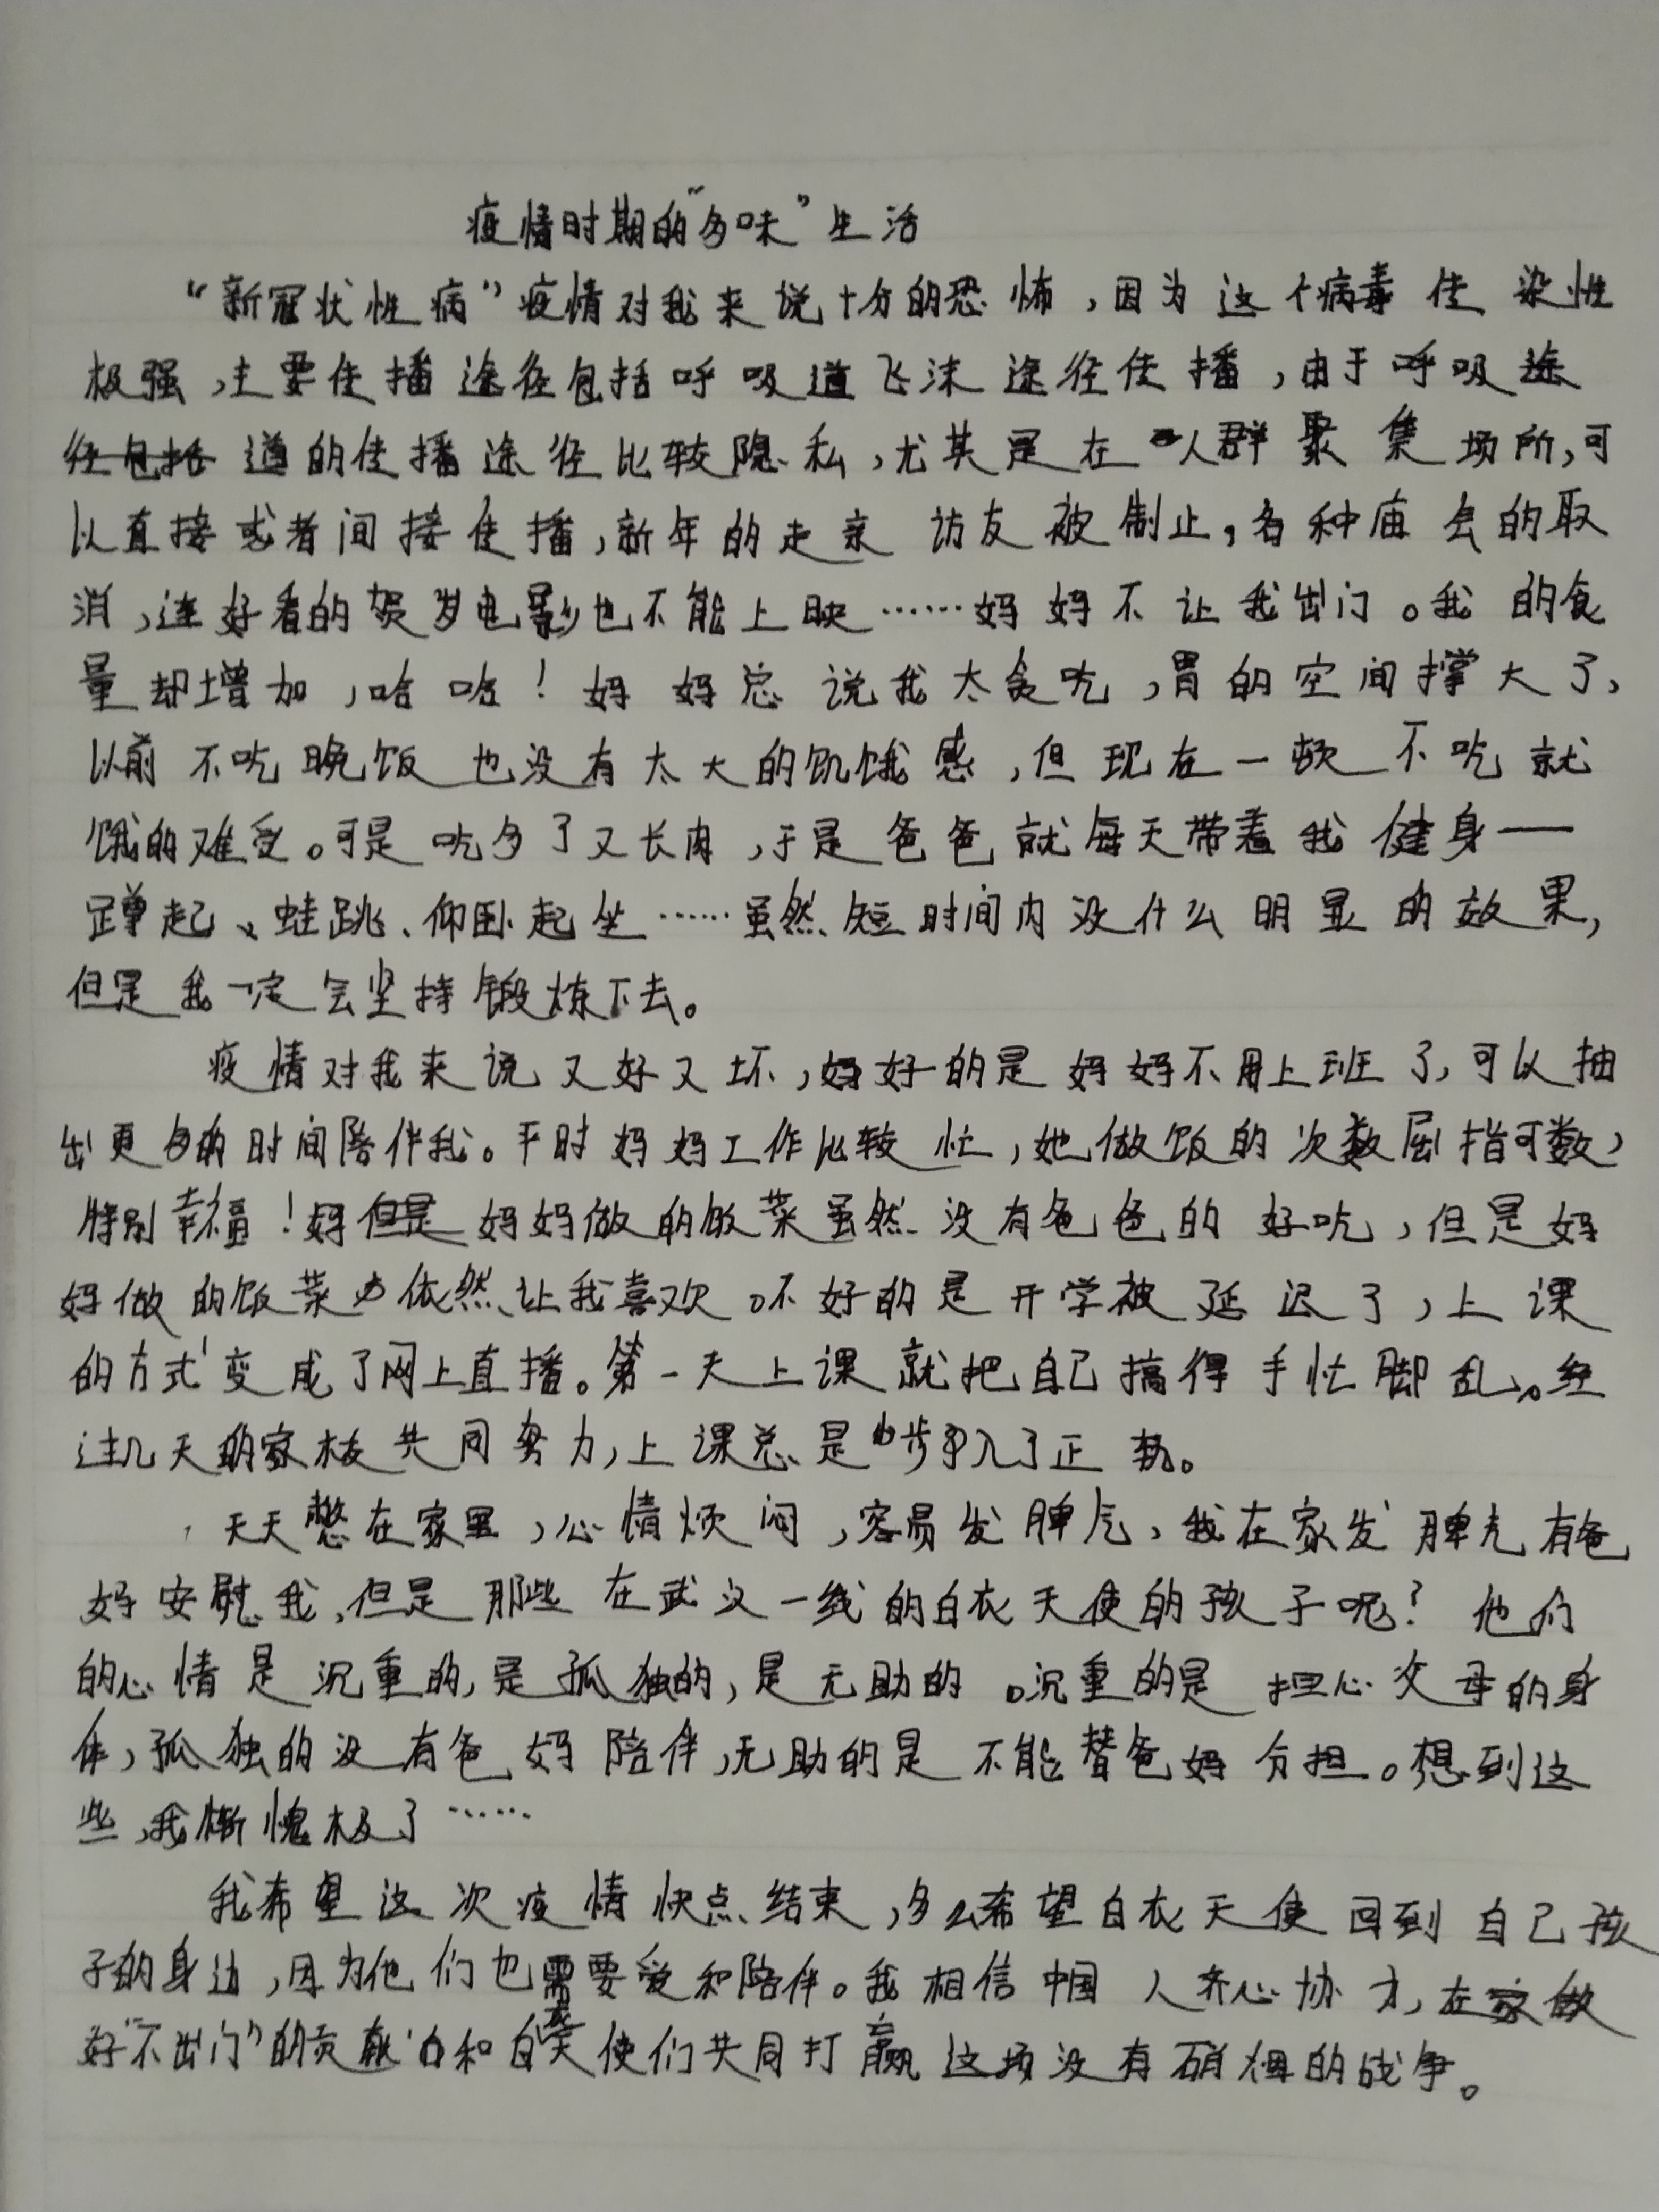 疫情时期的“多味”生活
“新冠状性病”疫情对我来说十分的恐怖，因为这个病毒传染性
极强，主要传播途径包括呼吸道飞沫途径传播，由于呼吸
道的传播途径比较隐私，尤其是在人群聚集场所，可
以直接或者间接传播，新年的走亲访友被制止，各种庙会的取
消，连好看的贺岁电影也不能上映……妈妈不让我出门。我的食
量却增加，哈哈！妈妈总说我太贪吃，胃的空间撑大了，
以前不吃晚饭也没有太大的饥饿感，但现在一顿不吃就
饿的难受。可是吃多了又长肉，于是爸爸就每天带着我健身——
蹲起、蛙跳、仰卧起坐……虽然短时间内没什么明显的效果，
但是我一定会坚持锻炼下去。
疫情对我来说又好又坏，好的是妈妈不用上班了，可以抽
出更多的时间陪伴我。平时妈妈工作比较忙，她做饭的次数屈指可数，
特别幸福！妈妈做的饭菜虽然没有爸爸的好吃，但是妈
妈做的饭菜依然让我喜欢。不好的是开学被延迟了，上课
的方式变成了网上直播。第一天上课就把自己搞得手忙脚乱。经
过几天的家校共同努力，上课总是步入了正轨。
天天憋在家里，心情烦闷，容易发脾气，我在家发脾气有爸
妈安慰我，但是那些在武汉一线的白衣天使的孩子呢？他们
的心情是沉重的，是孤独的，是无助的。沉重的是担心父母的身
体，孤独的没有爸妈陪伴，无助的是不能替爸妈分担。想到这
些，我惭愧极了……
我希望这次疫情快点结束，多么希望白衣天使回到自己孩
子的身边，因为他们也需要爱和陪伴。我相信中国人齐心协力，在家做
好“不出门”的贡献和白衣天使们共同打赢这场没有硝烟的战争。